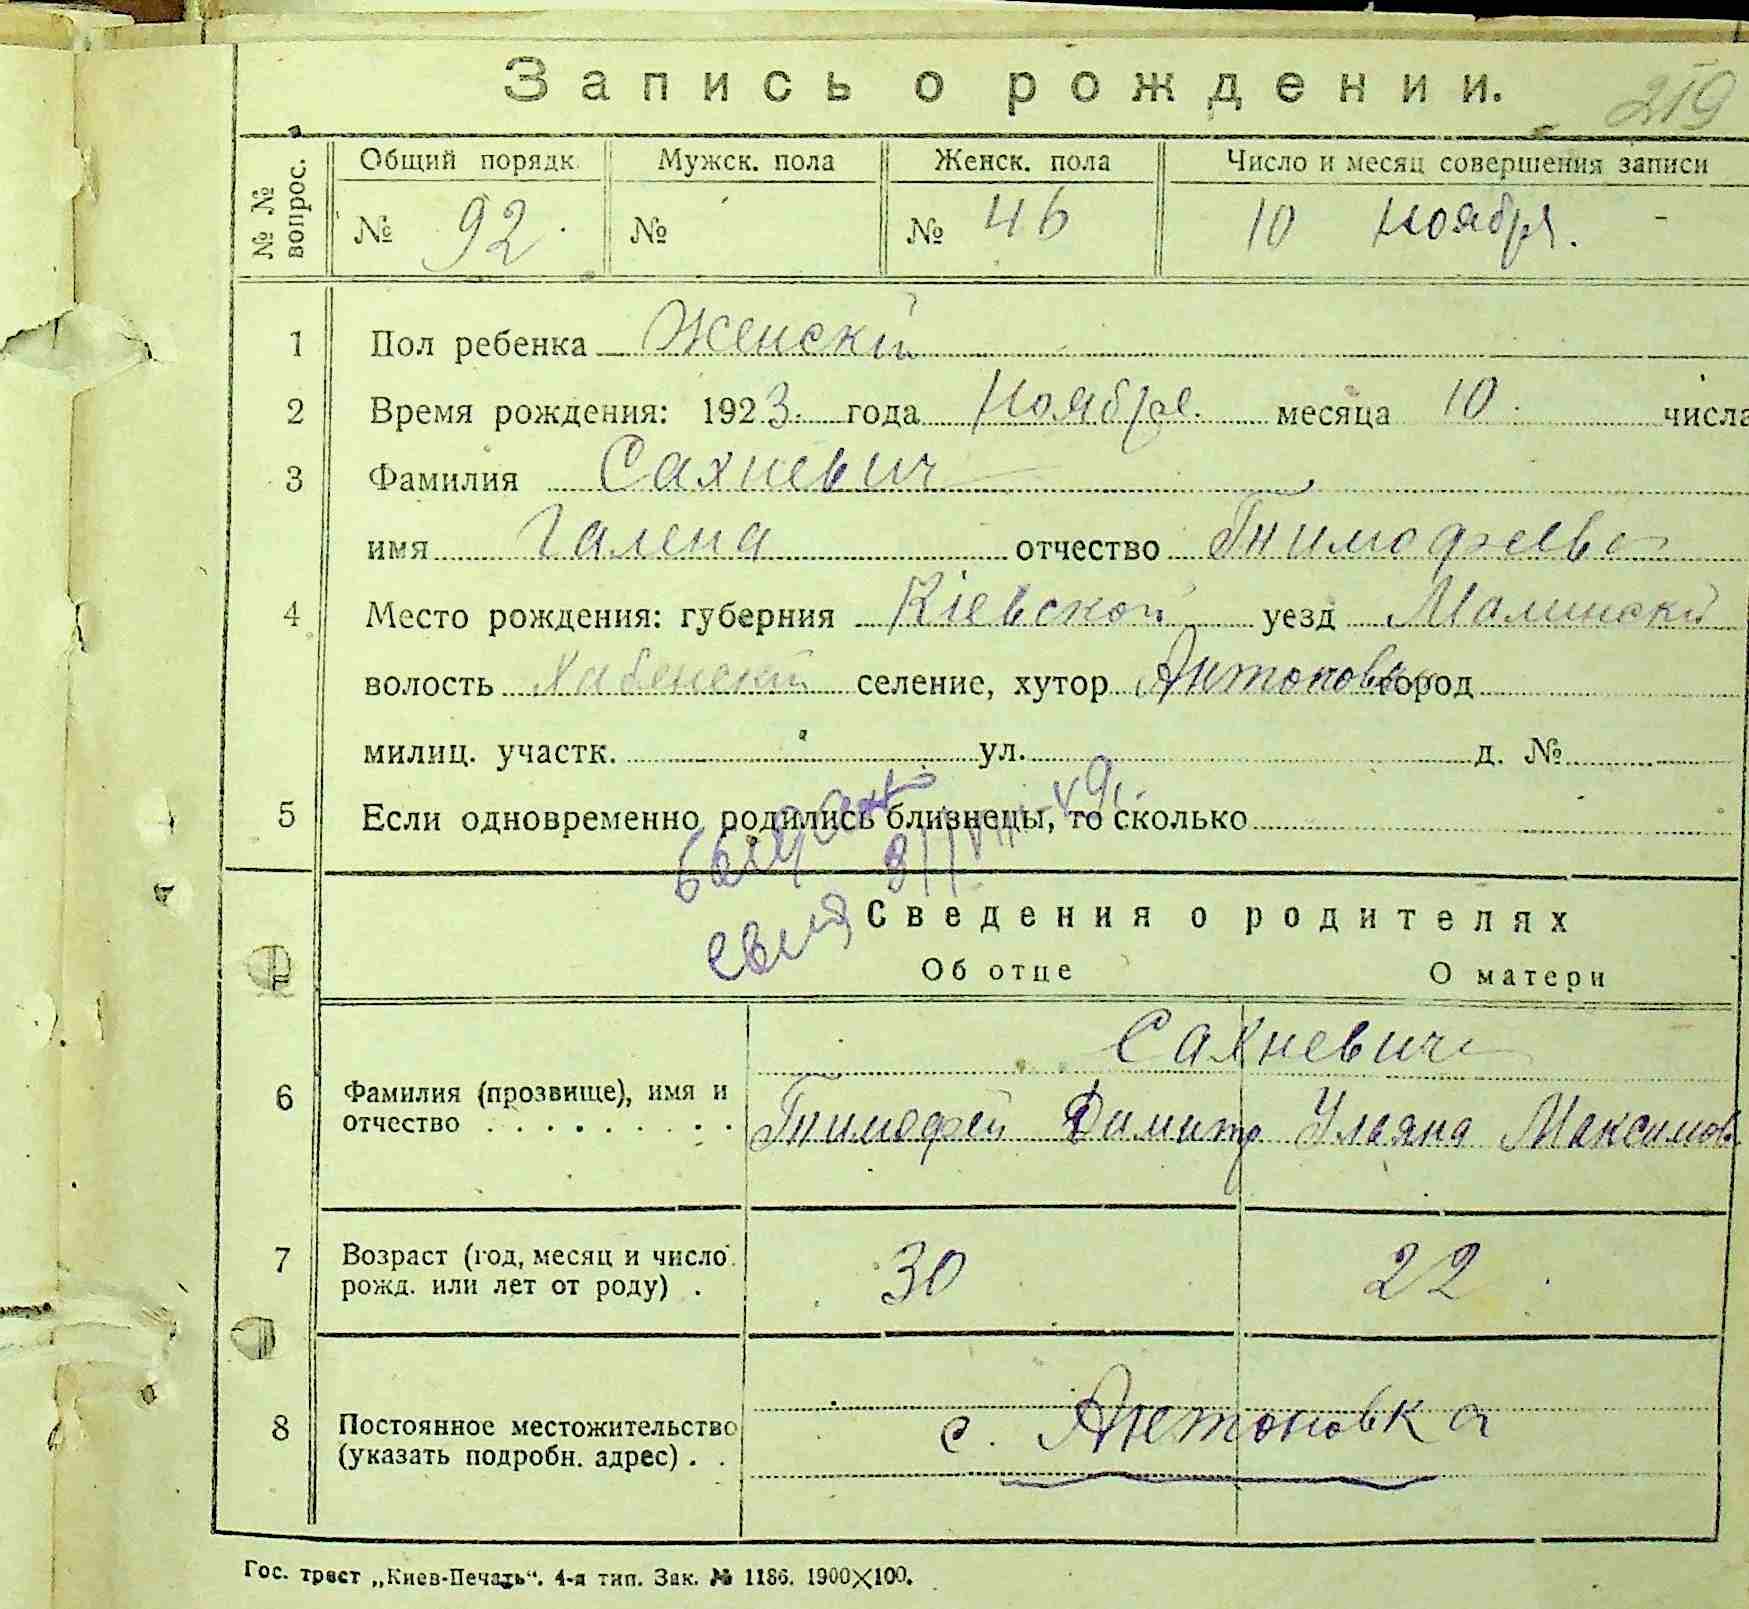 Запись о рождении.
219
№ № вопрос.
Общий порядк. Мужск. пола Женск. пола Число и месяц совершения записи
№ 92. № № 46 10 Ноября.
1 Пол ребенка Женскій
2 Время рождения: 1923. года Ноября. месяца 10. числа
3 Фамилия Сахневич
имя Галена отчество Тимофеева
4 Место рождения: губерния Кіевской уезд Малинскій
волость Хабенскій селение, хутор Антоновка город
милиц. участк. ул. д. №
5 Если одновременно родились близнецы, то сколько
Сведения о родителях
Об отце О матери
Сахневич
6 Фамилия (прозвище), имя и
отчество . . . . . . . . . Тимофей Димитр Ульяна Максимов
7 Возраст (год, месяц и число
рожд. или лет от роду) . 30 22
8 Постоянное местожительство
(указать подробн. адрес) . . с. Антоновка
Гос. трест „Киев-Печать“. 4-я тип. Зак. № 1186. 1900×100.